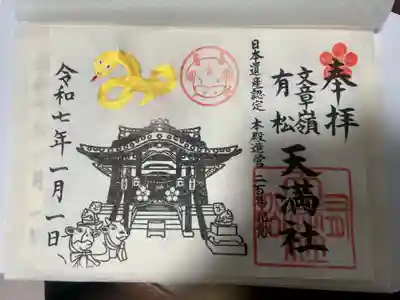 奉拝
文章嶺
有松
天満社
日本遺産認定 本殿造営二百年記念
令和七年一月一日